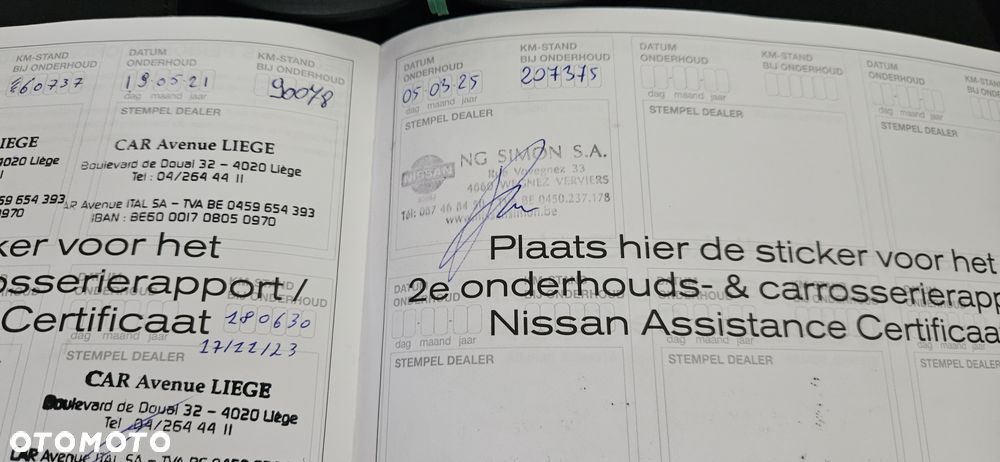 KM-STAND
BIJ ONDERHOUD
260737
IEGE
4020 Liège
59 654 393
0970
DATUM
ONDERHOUD
KM-STAND
BIJ ONDERHOUD
19-05-21
90078
dag maand jaar
STEMPEL DEALER
CAR Avenue LIEGE
Boulevard de Douai 32 – 4020 Liège
Tel : 04/264 44 11
AR Avenue ITAL SA – TVA BE 0459 654 393
IBAN : BE60 0017 0805 0970
ker voor het
osserierapport /
Certificaat
180630
dag maand jaar
17/11/23
STEMPEL DEALER
CAR Avenue LIEGE
Boulevard de Douai 32 – 4020 Liège
Tel 04/264 44 11
CAR Avenue ITAL SA – TVA BE 0459 654 393
DATUM
ONDERHOUD
KM-STAND
BIJ ONDERHOUD
05-03-25
207375
dag maand jaar
STEMPEL DEALER
NISSAN
NG SIMON S.A.
33
WEGNEZ VERVIERS
Tél: 087 46 84
BE 0450.237.178
DATUM
ONDERHOUD
KM-STAND
BIJ ONDERHOUD
dag maand jaar
STEMPEL DEALER
DATUM
ONDERHOUD
KM-STAND
BIJ ONDERHOUD
dag maand jaar
STEMPEL DEALER
Plaats hier de sticker voor het
2e onderhouds- & carrosserierapp
Nissan Assistance Certificaa
dag maand jaar
STEMPEL DEALER
dag maand jaar
STEMPEL DEALER
dag maand
STEMPEL DEALER
OTOMOTO